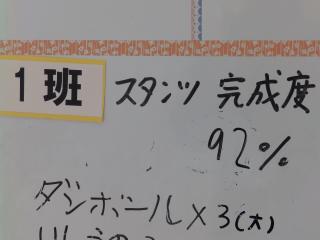 1班 スタンツ 完成度
92%
ダンボール×3(大)